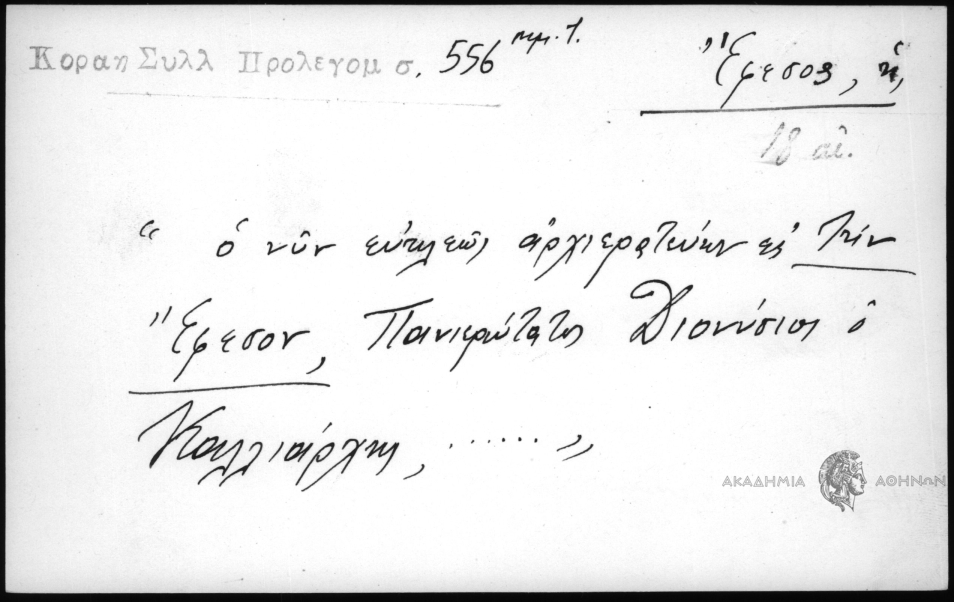 Κοραη Συλλ Προλεγομ σ. 556 σημ. 1.
Ἔφεσος, ἡ,
18 αἰ.
“ ὁ νῦν εὐκλεῶς ἀρχιερατεύων εἰς τὴν
Ἔφεσον, Πανιερώτατος Διονύσιος ὁ
Καλλιάρχης, ...... „
ΑΚΑΔΗΜΙΑ ΑΘΗΝΩΝ